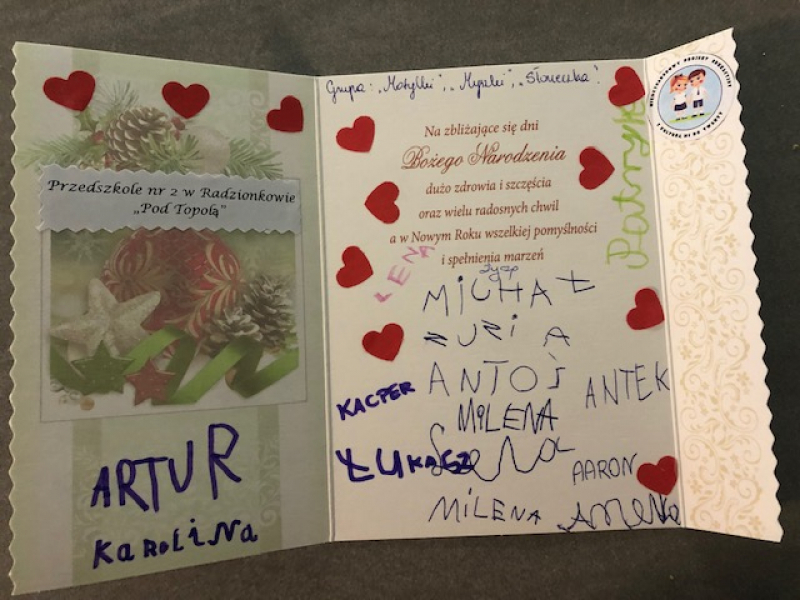 Przedszkole nr 2 w Radzionkowie
„Pod Topolą”
ARTUR
KAROLINA
Grupa: „Motylki”, „Myszki”, „Słoneczka”.
Na zbliżające się dni
Bożego Narodzenia
dużo zdrowia i szczęścia
oraz wielu radosnych chwil
a w Nowym Roku wszelkiej pomyślności
i spełnienia marzeń
życzą
LENA
MICHAŁ
ZUZIA
ANTOŚ
ANTEK
KACPER
MILENA
ŁUKASZ
Lena
AARON
MILENA
Patryk
MIĘDZYNARODOWY PROJEKT EDUKACYJNY
Z KULTURĄ MI DO TWARZY